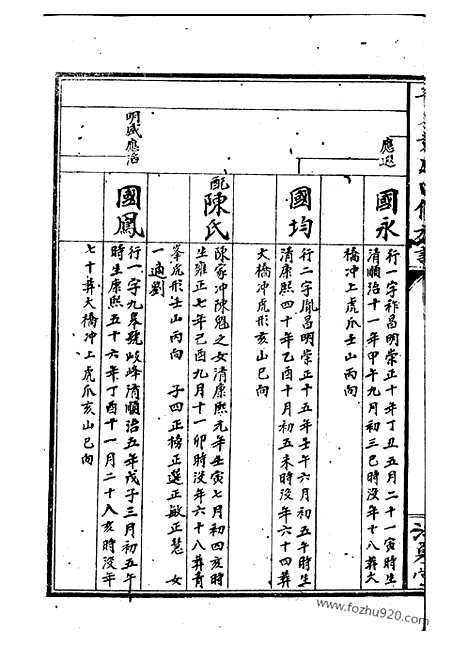 應遐
國永
行一字祚昌明崇正十年丁丑五月二十一寅時生
清順治十一年甲午九月初三巳時没年十八葬大
橋冲上虎爪壬山丙向
國均
行二字胤昌明崇正十五年壬午六月初五午時生
清康熙四十年乙酉十月初五未時没年六十四葬
大橋冲虎形亥山巳向
配陳氏
陳家冲陳魁之女清康熙元年壬寅七月初四亥時
生雍正七年己酉九月十一卯時没年六十八葬青
峯虎形壬山丙向 子四正榜正選正敏正慧 女
一適劉
明盛應治
國鳳
行一字九皋號岐峰清順治五年戊子三月初五午
時生康熙五十六年丁酉十一月二十八亥時没年
七十葬大橋冲上虎爪亥山巳向
www.fozhu920.com